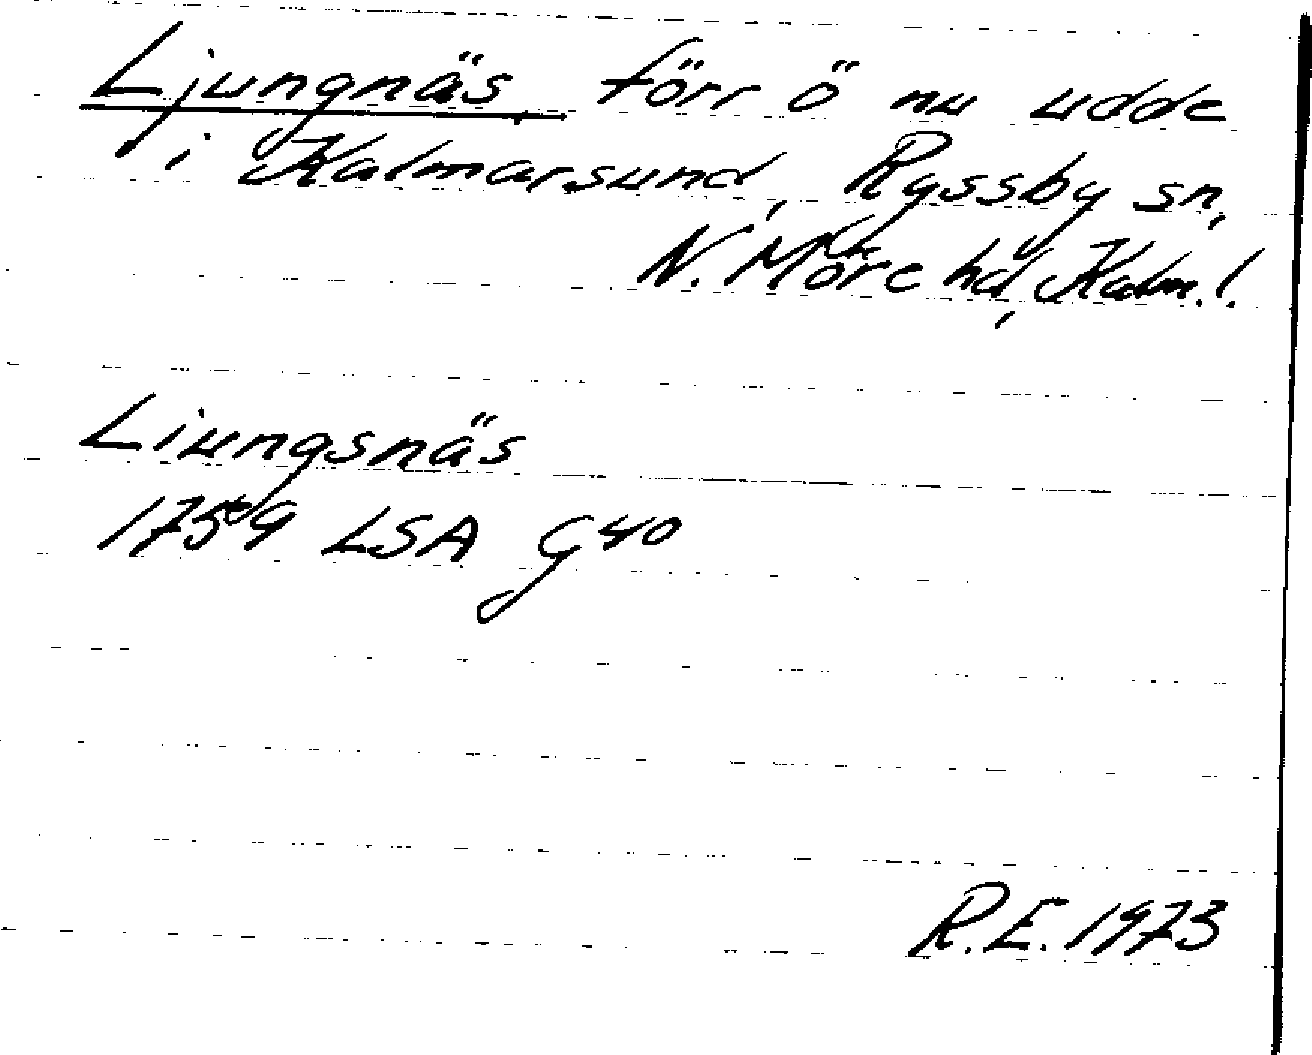 Ljungnäs förr ö nu udde
i Kalmarsund, Ryssby sn,
N. Möre hd, Kalm. l.
Liungsnäs
1759 LSA G40
R.E. 1973